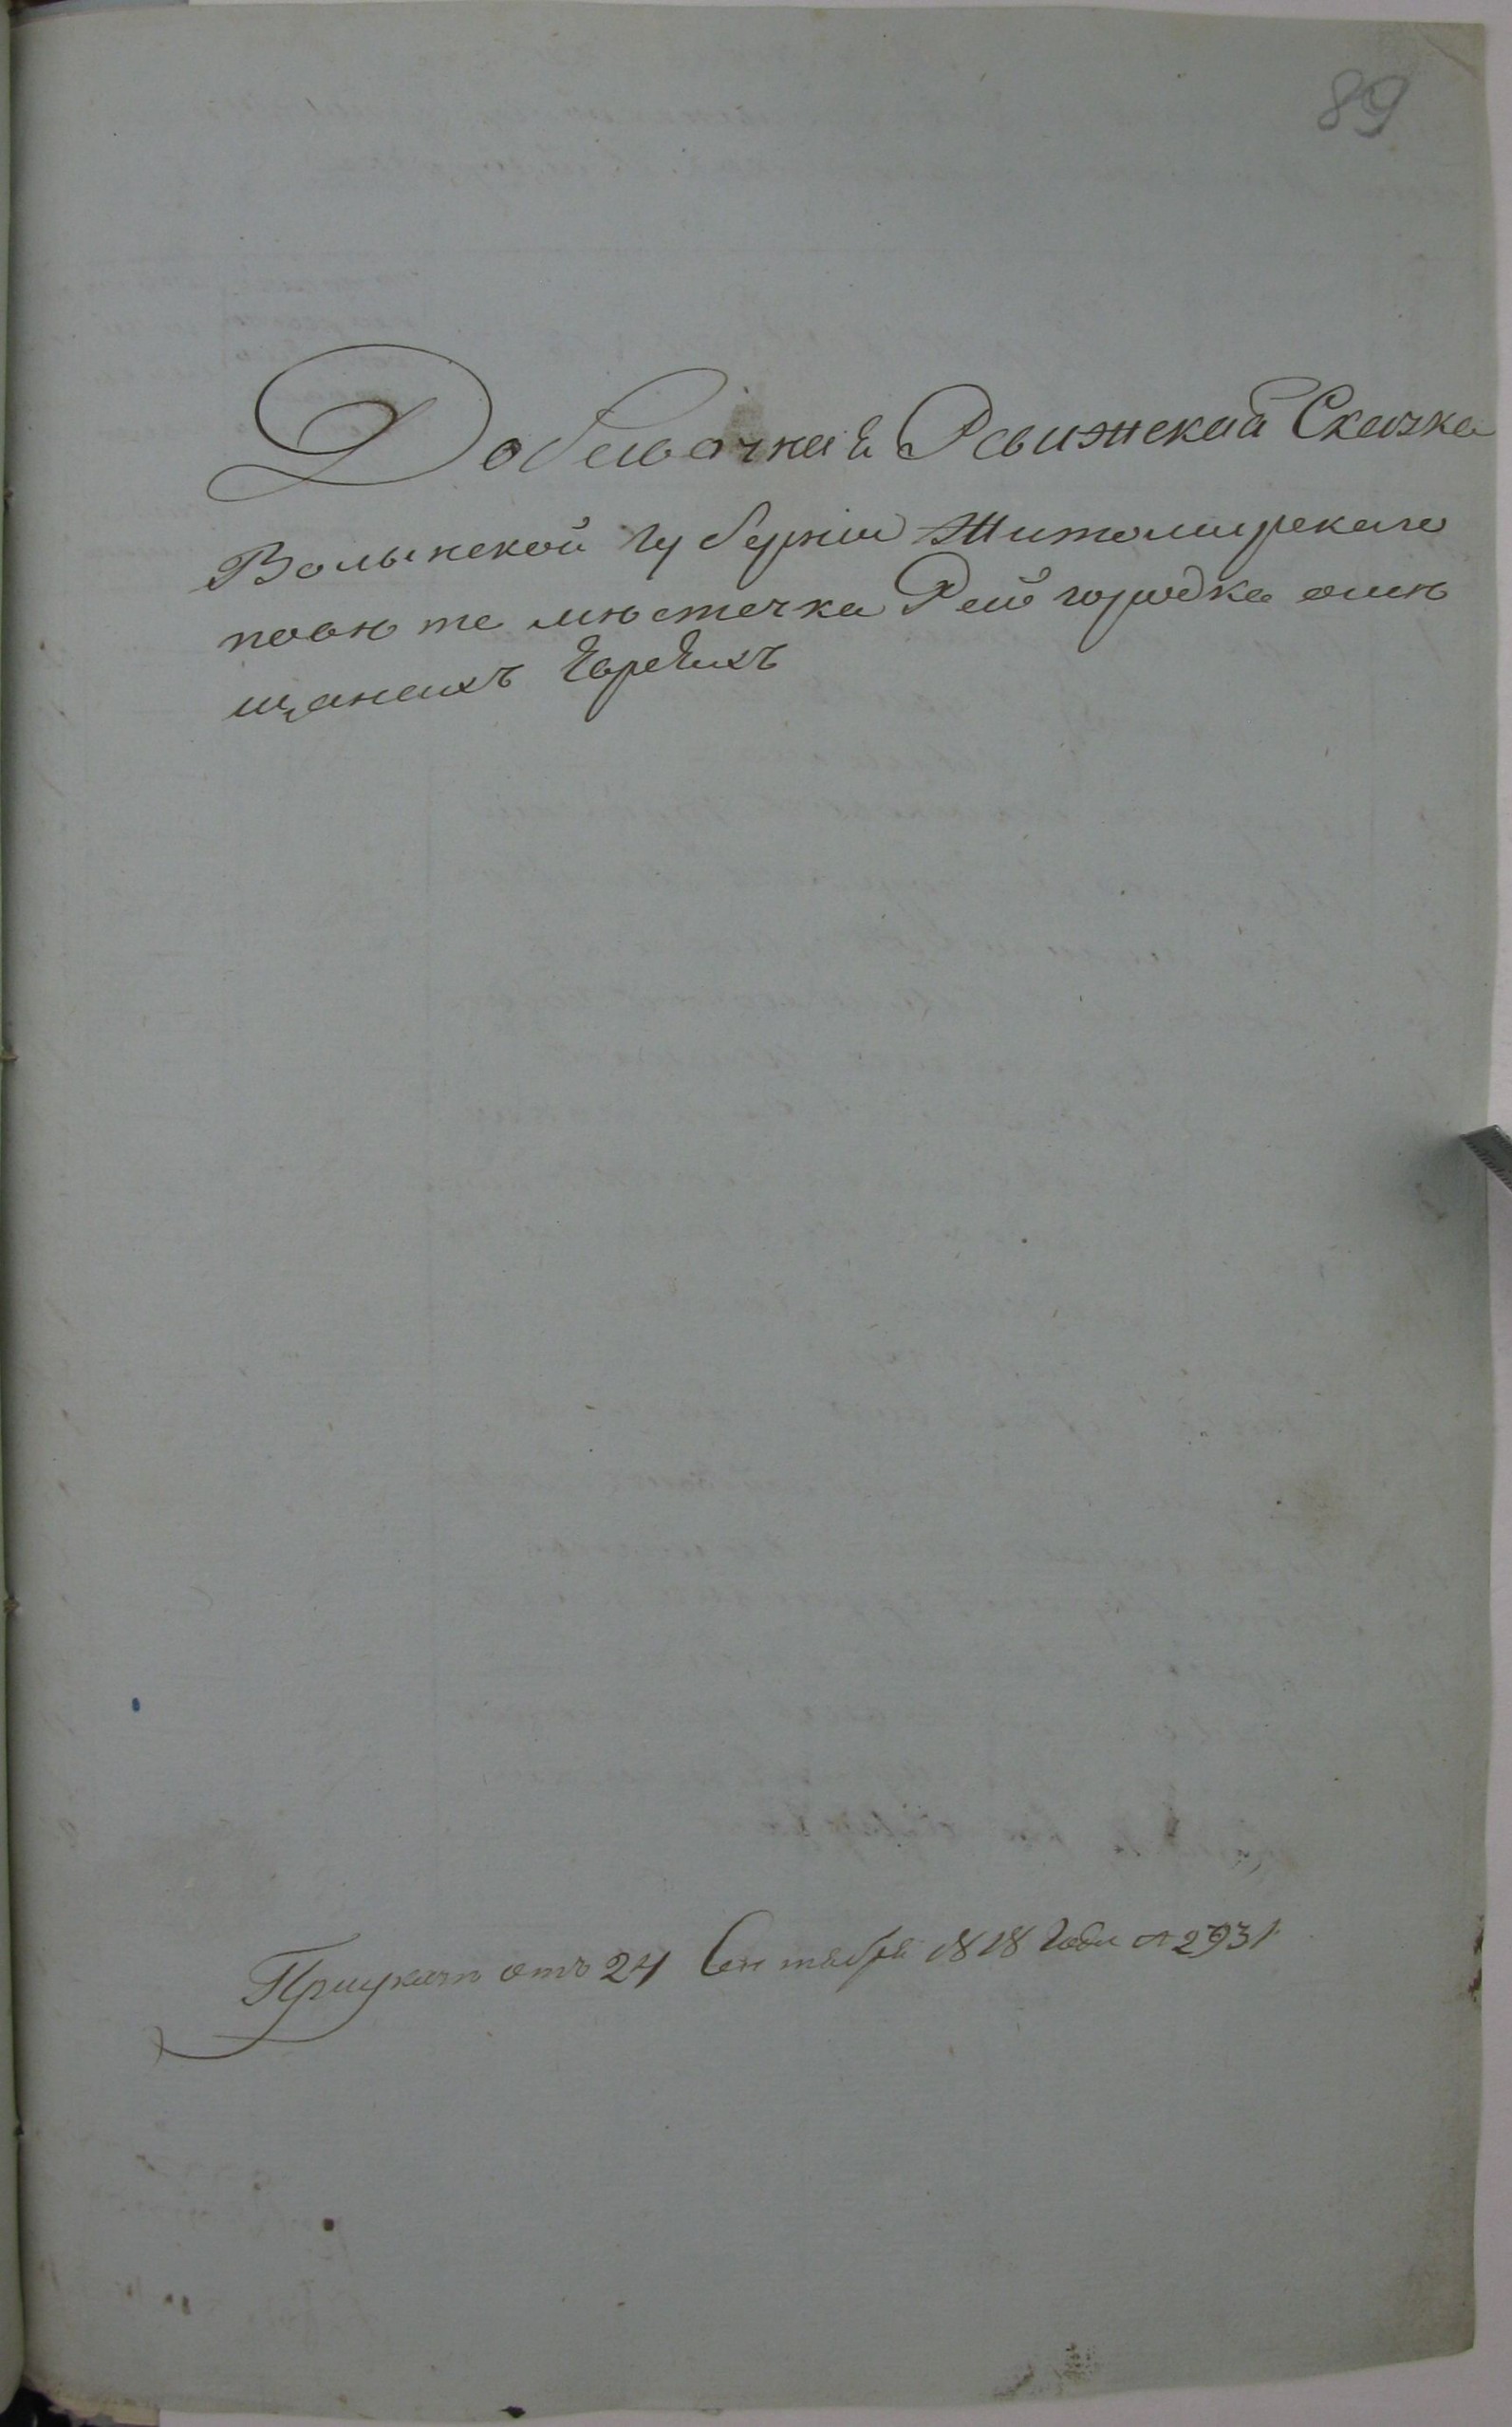 89
Добавочная Ревижская Сказка
Волынской губерніи Житомирскаго
повѣта мѣстечка Райгородка омѣ
щанахъ Евреяхъ
При указѣ отъ 24 Сентября 1818 Года № 2931